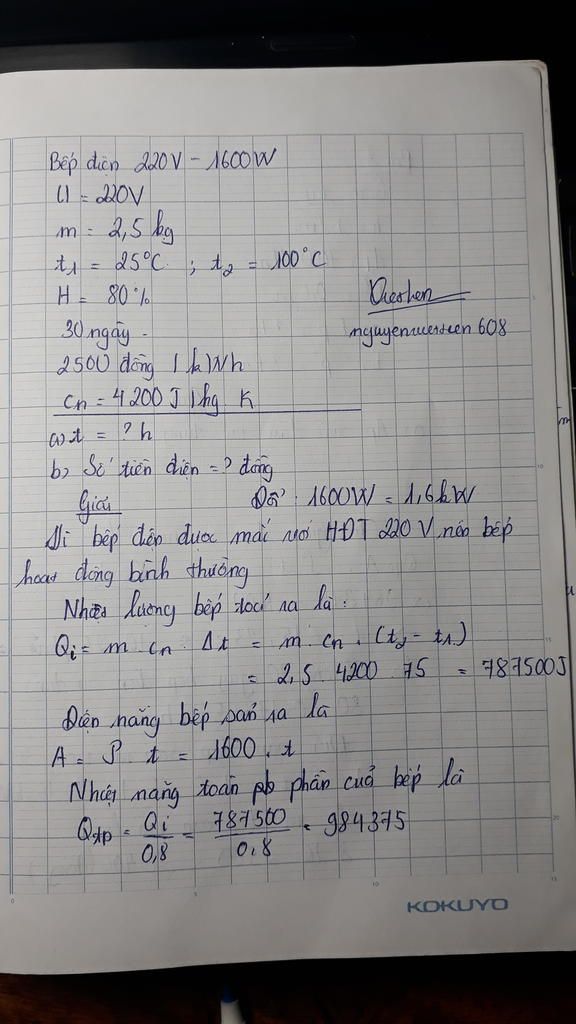 Bếp điện 220V - 1600W
U = 220V
m = 2,5 kg
t1 = 25°C ; t2 = 100°C
H = 80%
30 ngày -
nguyenuestien 608
2500 đồng / kWh
cn = 4200 J / kg K
a) t = ? h
b, Số tiền điện = ? đồng
Giải
Đổi : 1600W = 1,6kW
Vì bếp điện được mắc với HĐT 220 V nên bếp
hoạt động bình thường
Nhiệt lượng bếp toả ra là :
Qi = m . cn . Δt = m . cn . (t2 - t1)
= 2,5 . 4200 . 75 = 787500J
Điện năng bếp sản ra là
A = P . t = 1600 . t
Nhiệt năng toàn phần của bếp là
Qtp = Qi / 0,8 = 787500 / 0,8 = 984375
KOKUYO